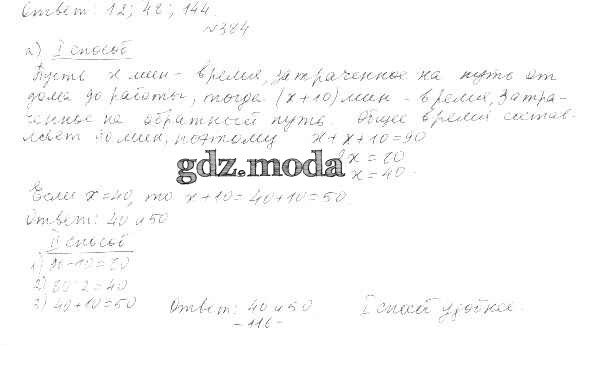 Ответ: 12; 48; 144.
№384
а) I способ
Пусть х мин - время, затраченное на путь от
дома до работы, тогда (х+10) мин - время, затра-
ченное на обратный путь. Общее время состав-
ляет 90 мин, поэтому х+х+10=90
2х = 80
gdz.moda
х = 40.
Если х=40, то х+10=40+10=50.
Ответ: 40 и 50
II способ
1) 90-10=80
2) 80:2=40
3) 40+10=50 Ответ: 40 и 50. I способ удобнее.
-116-